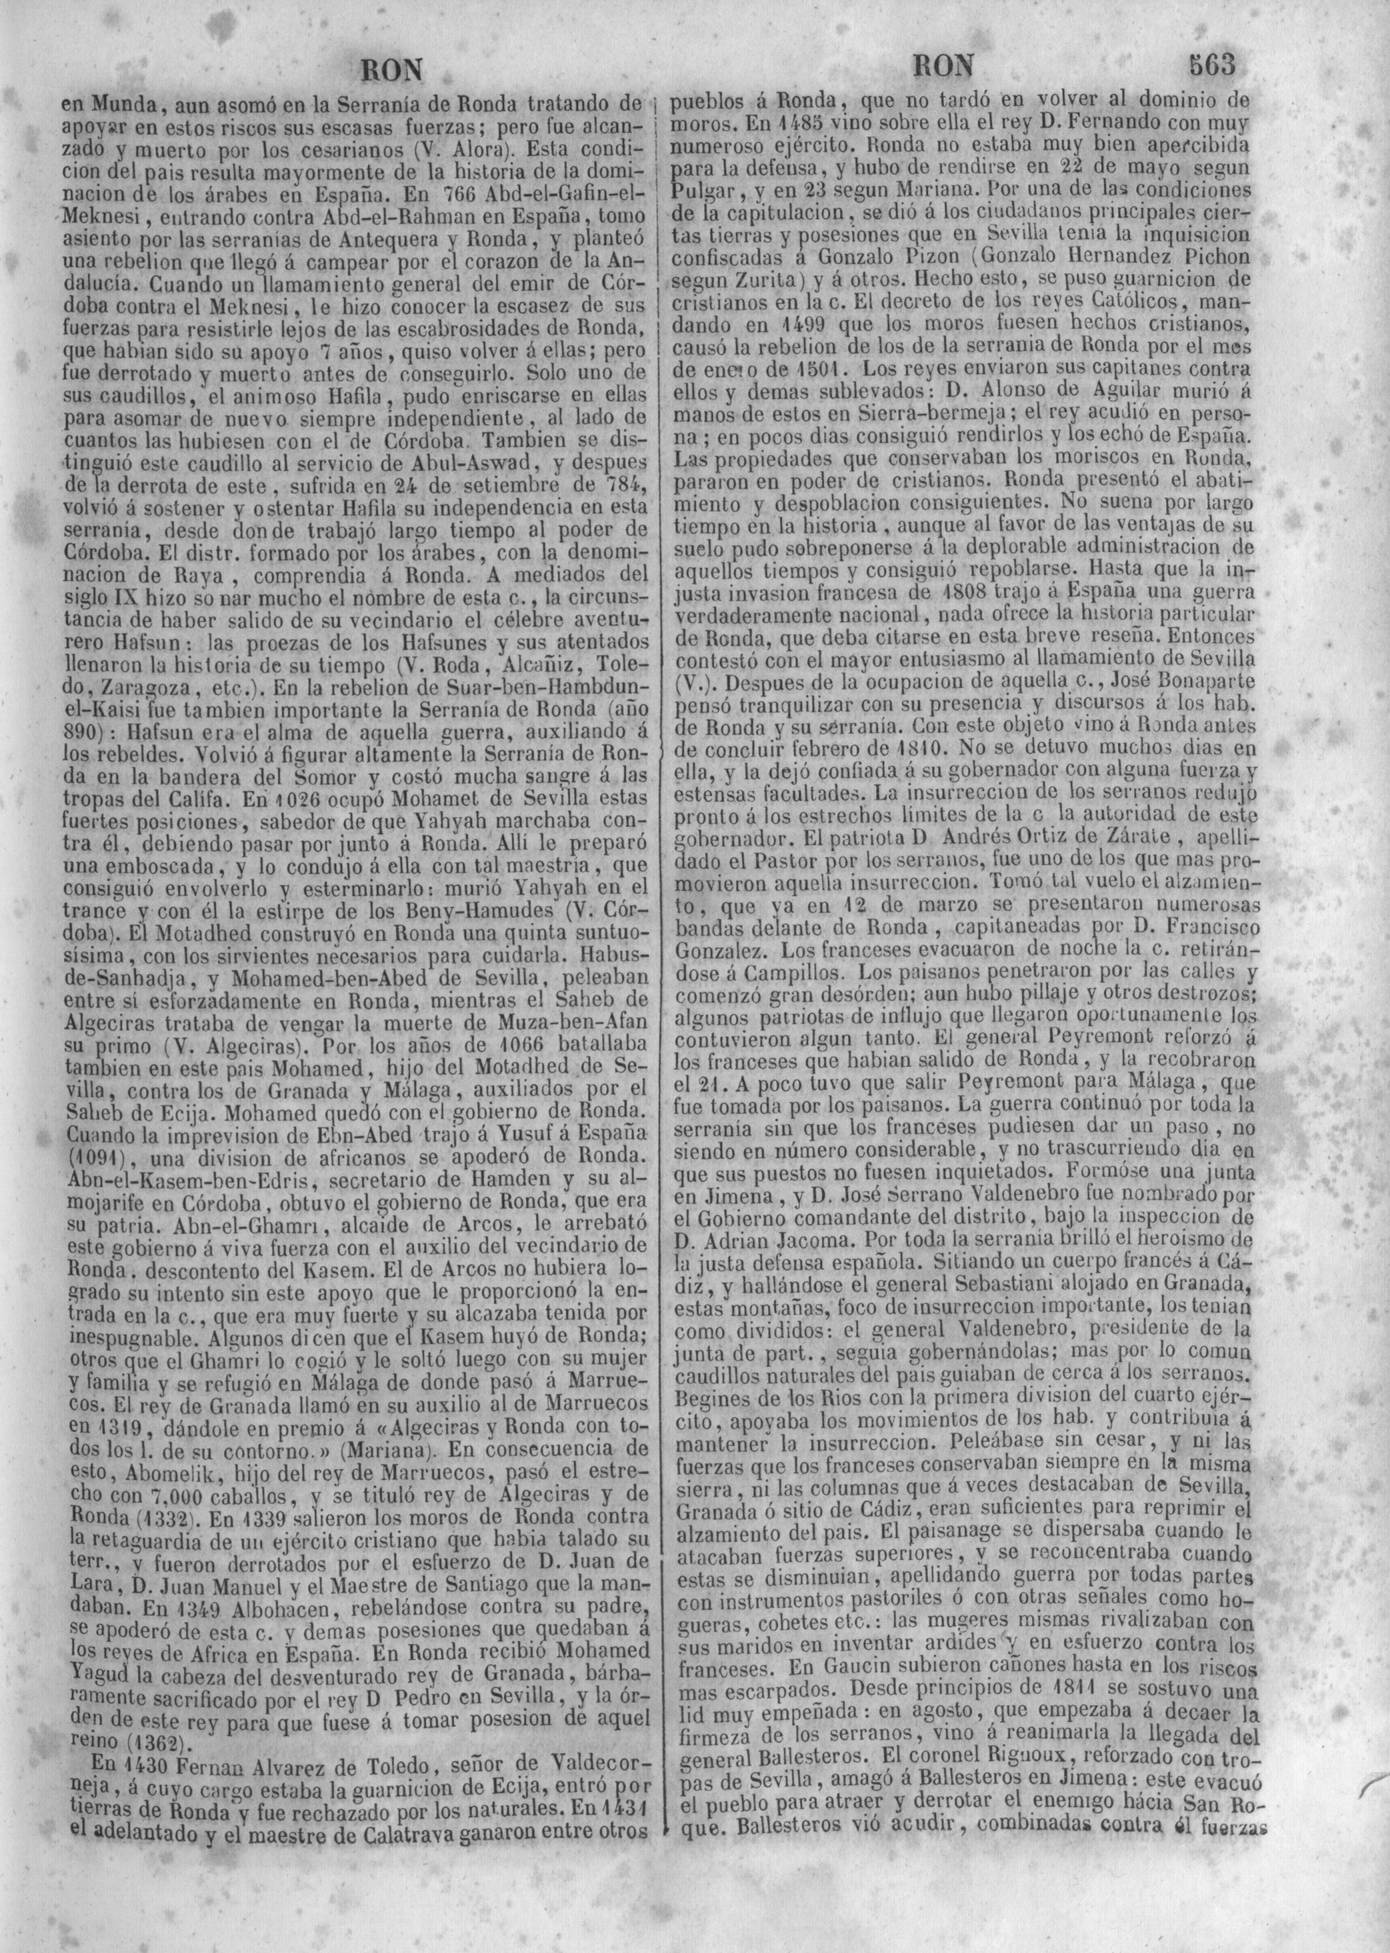 RON
en Munda, aun asomó en la Serranía de Ronda tratando de
apoyar en estos riscos sus escasas fuerzas; pero fue alcan-
zado y muerto por los cesarianos (V. Alora). Esta condi-
cion del pais resulta mayormente de la historia de la domi-
nacion de los árabes en España. En 766 Abd-el-Gafin-el-
Meknesi, entrando contra Abd-el-Rahman en España, tomo
asiento por las serranías de Antequera y Ronda, y planteó
una rebelion que llegó á campear por el corazon de la An-
dalucía. Cuando un llamamiento general del emir de Cór-
doba contra el Meknesi, le hizo conocer la escasez de sus
fuerzas para resistirle lejos de las escabrosidades de Ronda,
que habian sido su apoyo 7 años, quiso volver á ellas; pero
fue derrotado y muerto antes de conseguirlo. Solo uno de
sus caudillos, el animoso Hafila, pudo enriscarse en ellas
para asomar de nuevo siempre independiente, al lado de
cuantos las hubiesen con el de Córdoba. Tambien se dis-
tinguió este caudillo al servicio de Abul-Aswad, y despues
de la derrota de este, sufrida en 24 de setiembre de 784,
volvió á sostener y ostentar Hafila su independencia en esta
serrania, desde donde trabajó largo tiempo al poder de
Córdoba. El distr. formado por los árabes, con la denomi-
nacion de Raya, comprendia á Ronda. A mediados del
siglo IX hizo sonar mucho el nombre de esta c., la circuns-
tancia de haber salido de su vecindario el célebre aventu-
rero Hafsun: las proezas de los Hafsunes y sus atentados
llenaron la historia de su tiempo (V. Roda, Alcañiz, Tole-
do, Zaragoza, etc.). En la rebelion de Suar-ben-Hambdun-
el-Kaisi fue tambien importante la Serranía de Ronda (año
890): Hafsun era el alma de aquella guerra, auxiliando á
los rebeldes. Volvió á figurar altamente la Serranía de Ron-
da en la bandera del Somor y costó mucha sangre á las
tropas del Califa. En 1026 ocupó Mohamet de Sevilla estas
fuertes posiciones, sabedor de que Yahyah marchaba con-
tra él, debiendo pasar por junto á Ronda. Alli le preparó
una emboscada, y lo condujo á ella con tal maestria, que
consiguió envolverlo y esterminarlo: murió Yahyah en el
trance y con él la estirpe de los Beny-Hamudes (V. Cór-
doba). El Motadhed construyó en Ronda una quinta suntuo-
sísima, con los sirvientes necesarios para cuidarla. Habus-
de-Sanhadja, y Mohamed-ben-Abed de Sevilla, peleaban
entre sí esforzadamente en Ronda, mientras el Saheb de
Algeciras trataba de vengar la muerte de Muza-ben-Afan
su primo (V. Algeciras). Por los años de 1066 batallaba
tambien en este pais Mohamed, hijo del Motadhed de Se-
villa, contra los de Granada y Málaga, auxiliados por el
Saheb de Ecija. Mohamed quedó con el gobierno de Ronda.
Cuando la imprevision de Ebn-Abed trajo á Yusuf á España
(1091), una division de africanos se apoderó de Ronda.
Abn-el-Kasem-ben-Edris, secretario de Hamden y su al-
mojarife en Córdoba, obtuvo el gobierno de Ronda, que era
su patria. Abn-el-Ghamri, alcaide de Arcos, le arrebató
este gobierno á viva fuerza con el auxilio del vecindario de
Ronda, descontento del Kasem. El de Arcos no hubiera lo-
grado su intento sin este apoyo que le proporcionó la en-
trada en la c., que era muy fuerte y su alcazaba tenida por
inespugnable. Algunos dicen que el Kasem huyó de Ronda;
otros que el Ghamri lo cogió y le soltó luego con su mujer
y familia y se refugió en Málaga de donde pasó á Marrue-
cos. El rey de Granada llamó en su auxilio al de Marruecos
en 1319, dándole en premio á «Algeciras y Ronda con to-
dos los l. de su contorno.» (Mariana). En consecuencia de
esto, Abomelik, hijo del rey de Marruecos, pasó el estre-
cho con 7,000 caballos, y se tituló rey de Algeciras y de
Ronda (1332). En 1339 salieron los moros de Ronda contra
la retaguardia de un ejército cristiano que habia talado su
terr., y fueron derrotados por el esfuerzo de D. Juan de
Lara, D. Juan Manuel y el Maestre de Santiago que la man-
daban. En 1349 Albohacen, rebelándose contra su padre,
se apoderó de esta c. y demas posesiones que quedaban á
los reyes de Africa en España. En Ronda recibió Mohamed
Yagud la cabeza del desventurado rey de Granada, bárba-
ramente sacrificado por el rey D Pedro en Sevilla, y la ór-
den de este rey para que fuese á tomar posesion de aquel
reino (1362).
En 1430 Fernan Alvarez de Toledo, señor de Valdecor-
neja, á cuyo cargo estaba la guarnicion de Ecija, entró por
tierras de Ronda y fue rechazado por los naturales. En 1431
el adelantado y el maestre de Calatrava ganaron entre otros
RON 563
pueblos á Ronda, que no tardó en volver al dominio de
moros. En 1485 vino sobre ella el rey D. Fernando con muy
numeroso ejército. Ronda no estaba muy bien apercibida
para la defensa, y hubo de rendirse en 22 de mayo segun
Pulgar, y en 23 segun Mariana. Por una de las condiciones
de la capitulacion, se dió á los ciudadanos principales cier-
tas tierras y posesiones que en Sevilla tenia la inquisicion
confiscadas á Gonzalo Pizon (Gonzalo Hernandez Pichon
segun Zurita) y á otros. Hecho esto, se puso guarnicion de
cristianos en la c. El decreto de los reyes Católicos, man-
dando en 1499 que los moros fuesen hechos cristianos,
causó la rebelion de los de la serrania de Ronda por el mes
de enero de 1501. Los reyes enviaron sus capitanes contra
ellos y demas sublevados: D. Alonso de Aguilar murió á
manos de estos en Sierra-bermeja; el rey acudió en perso-
na; en pocos dias consiguió rendirlos y los echó de España.
Las propiedades que conservaban los moriscos en Ronda,
pararon en poder de cristianos. Ronda presentó el abati-
miento y despoblacion consiguientes. No suena por largo
tiempo en la historia, aunque al favor de las ventajas de su
suelo pudo sobreponerse á la deplorable administracion de
aquellos tiempos y consiguió repoblarse. Hasta que la in-
justa invasion francesa de 1808 trajo á España una guerra
verdaderamente nacional, nada ofrece la historia particular
de Ronda, que deba citarse en esta breve reseña. Entonces
contestó con el mayor entusiasmo al llamamiento de Sevilla
(V.). Despues de la ocupacion de aquella c., José Bonaparte
pensó tranquilizar con su presencia y discursos á los hab.
de Ronda y su serranía. Con este objeto vino á Ronda antes
de concluir febrero de 1810. No se detuvo muchos dias en
ella, y la dejó confiada á su gobernador con alguna fuerza y
estensas facultades. La insurreccion de los serranos redujo
pronto á los estrechos límites de la c la autoridad de este
gobernador. El patriota D Andrés Ortiz de Zárate, apelli-
dado el Pastor por los serranos, fue uno de los que mas pro-
movieron aquella insurreccion. Tomó tal vuelo el alzamien-
to, que ya en 12 de marzo se presentaron numerosas
bandas delante de Ronda, capitaneadas por D. Francisco
Gonzalez. Los franceses evacuaron de noche la c. retirán-
dose á Campillos. Los paisanos penetraron por las calles y
comenzó gran desórden; aun hubo pillaje y otros destrozos;
algunos patriotas de influjo que llegaron oportunamente los
contuvieron algun tanto. El general Peyremont reforzó á
los franceses que habian salido de Ronda, y la recobraron
el 21. A poco tuvo que salir Peyremont para Málaga, que
fue tomada por los paisanos. La guerra continuó por toda la
serranía sin que los franceses pudiesen dar un paso, no
siendo en número considerable, y no trascurriendo dia en
que sus puestos no fuesen inquietados. Formóse una junta
en Jimena, y D. José Serrano Valdenebro fue nombrado por
el Gobierno comandante del distrito, bajo la inspeccion de
D. Adrian Jacoma. Por toda la serrania brilló el heroismo de
la justa defensa española. Sitiando un cuerpo francés á Cá-
diz, y hallándose el general Sebastiani alojado en Granada,
estas montañas, foco de insurreccion importante, los tenian
como divididos: el general Valdenebro, presidente de la
junta de part., seguia gobernándolas; mas por lo comun
caudillos naturales del pais guiaban de cerca á los serranos.
Begines de los Rios con la primera division del cuarto ejér-
cito, apoyaba los movimientos de los hab. y contribuia á
mantener la insurreccion. Peleábase sin cesar, y ni las
fuerzas que los franceses conservaban siempre en la misma
sierra, ni las columnas que á veces destacaban de Sevilla,
Granada ó sitio de Cádiz, eran suficientes para reprimir el
alzamiento del pais. El paisanage se dispersaba cuando le
atacaban fuerzas superiores, y se reconcentraba cuando
estas se disminuian, apellidando guerra por todas partes
con instrumentos pastoriles ó con otras señales como ho-
gueras, cohetes etc.: las mugeres mismas rivalizaban con
sus maridos en inventar ardides y en esfuerzo contra los
franceses. En Gaucin subieron cañones hasta en los riscos
mas escarpados. Desde principios de 1811 se sostuvo una
lid muy empeñada: en agosto, que empezaba á decaer la
firmeza de los serranos, vino á reanimarla la llegada del
general Ballesteros. El coronel Rignoux, reforzado con tro-
pas de Sevilla, amagó á Ballesteros en Jimena: este evacuó
el pueblo para atraer y derrotar el enemigo hácia San Ro-
que. Ballesteros vió acudir, combinadas contra él fuerzas